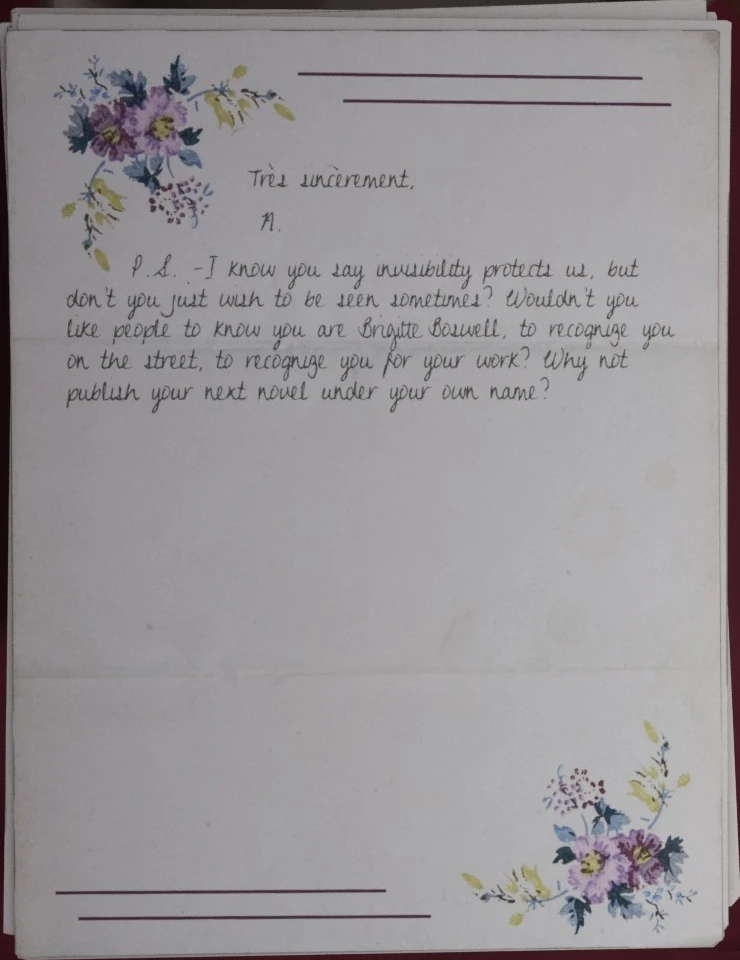 Très sincèrement,
A.
P.S. - I know you say invisibility protects us, but
don't you just wish to be seen sometimes? Wouldn't you
like people to know you are Brigitte Boswell, to recognize you
on the street, to recognize you for your work? Why not
publish your next novel under your own name?